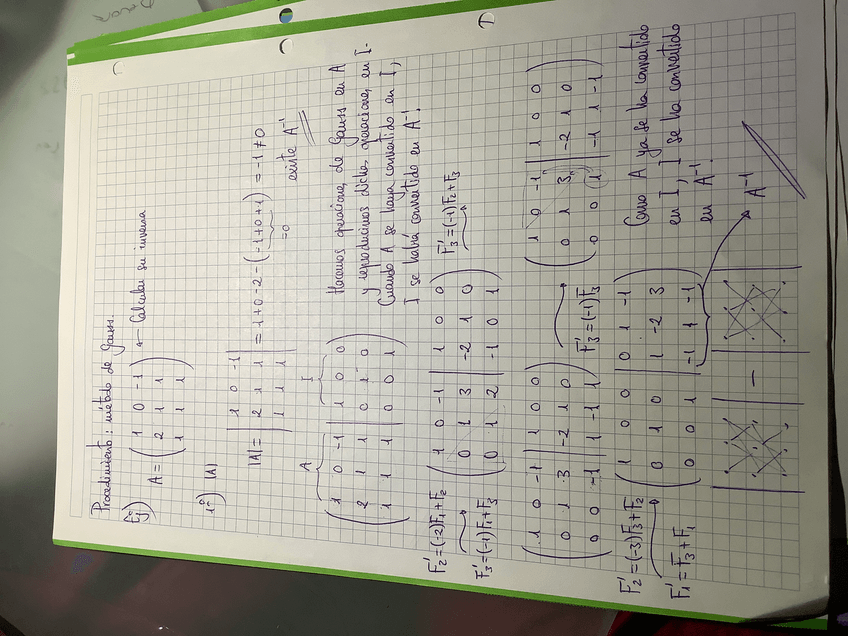 Procedimiento: método de Gauss.
Ej) A = ( 1 0 -1 ← Calcular su inversa
2 1 1
1 1 1 )
1º) |A|
|A| = | 1 0 -1
2 1 1
1 1 1 | = 1+0-2-(-1+0+1) = -1 ≠ 0
=0
existe A⁻¹
A I
( 1 0 -1 | 1 0 0
2 1 1 | 0 1 0
1 1 1 | 0 0 1 )
Hacemos operaciones de Gauss en A
y reproducimos dichas operaciones en I.
Cuando A se haya convertido en I,
I se habrá convertido en A⁻¹.
F₂' = (-2)F₁+F₂
F₃' = (-1)F₁+F₃
( 1 0 -1 | 1 0 0
0 1 3 | -2 1 0
0 1 2 | -1 0 1 )
F₃' = (-1)F₂+F₃
( 1 0 -1 | 1 0 0
0 1 3 | -2 1 0
0 0 -1 | 1 -1 1 )
F₃' = (-1)F₃
( 1 0 -1 | 1 0 0
0 1 3 | -2 1 0
0 0 1 | -1 1 -1 )
F₂' = (-3)F₃+F₂
F₁' = F₃+F₁
( 1 0 0 | 0 1 -1
0 1 0 | 1 -2 3
0 0 1 | -1 1 -1 )
A⁻¹
Como A ya se ha convertido
en I, I se ha convertido
en A⁻¹.